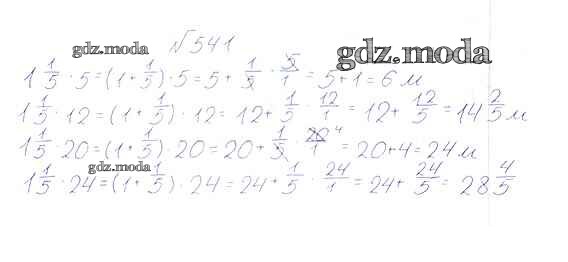 gdz.moda
№541
gdz.moda
1 1/5 · 5 = (1 + 1/5) · 5 = 5 + 1/5 · 5/1 = 5 + 1 = 6 м
1 1/5 · 12 = (1 + 1/5) · 12 = 12 + 1/5 · 12/1 = 12 + 12/5 = 14 2/5 м
1 1/5 · 20 = (1 + 1/5) · 20 = 20 + 1/5 · 20/1 4 = 20 + 4 = 24 м
gdz.moda
1 1/5 · 24 = (1 + 1/5) · 24 = 24 + 1/5 · 24/1 = 24 + 24/5 = 28 4/5